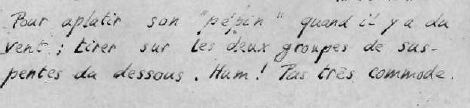 Pour aplatir son "pépin" quand il y a du
vent ; tirer sur les deux groupes de sus-
pentes du dessous. Hum! Pas très commode.